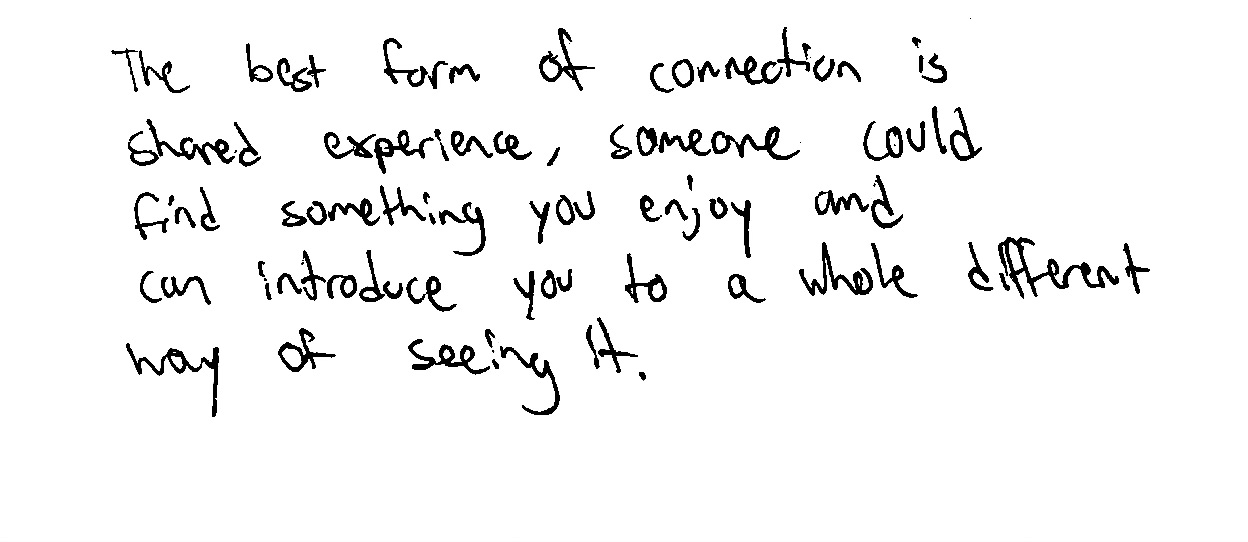 The best form of connection is
shared experience, someone could
find something you enjoy and
can introduce you to a whole different
way of seeing it.